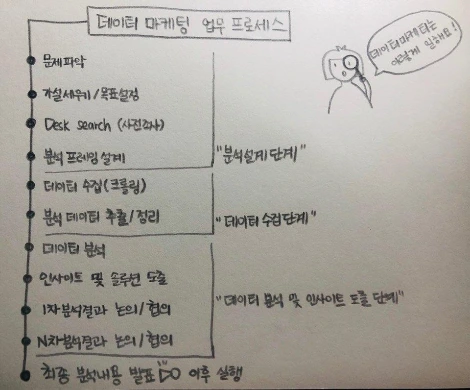 데이터 마케팅 업무 프로세스
데이터 마케터는
이렇게 일해요!
문제파악
가설세우기/목표설정
Desk search (사전조사)
분석 프레임 설계
"분석설계 단계"
데이터 수집(크롤링)
분석 데이터 추출/정리
"데이터 수집단계"
데이터 분석
인사이트 및 솔루션 도출
1차분석결과 논의/협의
N차분석결과 논의/협의
"데이터 분석 및 인사이트 도출 단계"
최종 분석내용 발표 DO 이후 실행